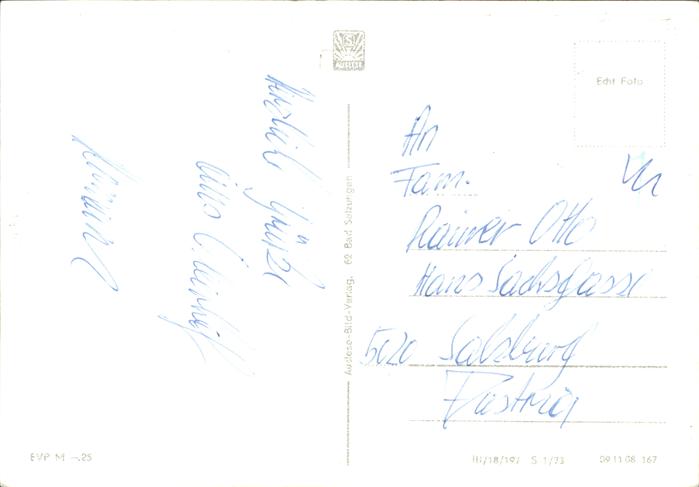 Herzliche Grüße
aus
An
Fam.
Rainer Otto
Hans Sachsgasse
5020 Salzburg
Austria
Echt Foto
AUSLESE
Auslese-Bild-Verlag, 62 Bad Salzungen
EVP M -.25
III/18/197 S 1/73 09 11 08 167